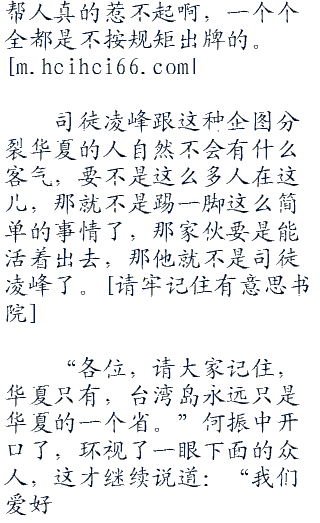 帮人真的惹不起啊，一个个
全都是不按规矩出牌的。
[m.hcihci66.com|
司徒凌峰跟这种企图分
裂华夏的人自然不会有什么
客气，要不是这么多人在这
儿，那就不是踢一脚这么简
单的事情了，那家伙要是能
活着出去，那他就不是司徒
凌峰了。[请牢记住有意思书
院]
“各位，请大家记住，
华夏只有，台湾岛永远只是
华夏的一个省。”何振中开
口了，环视了一眼下面的众
人，这才继续说道：“我们
爱好